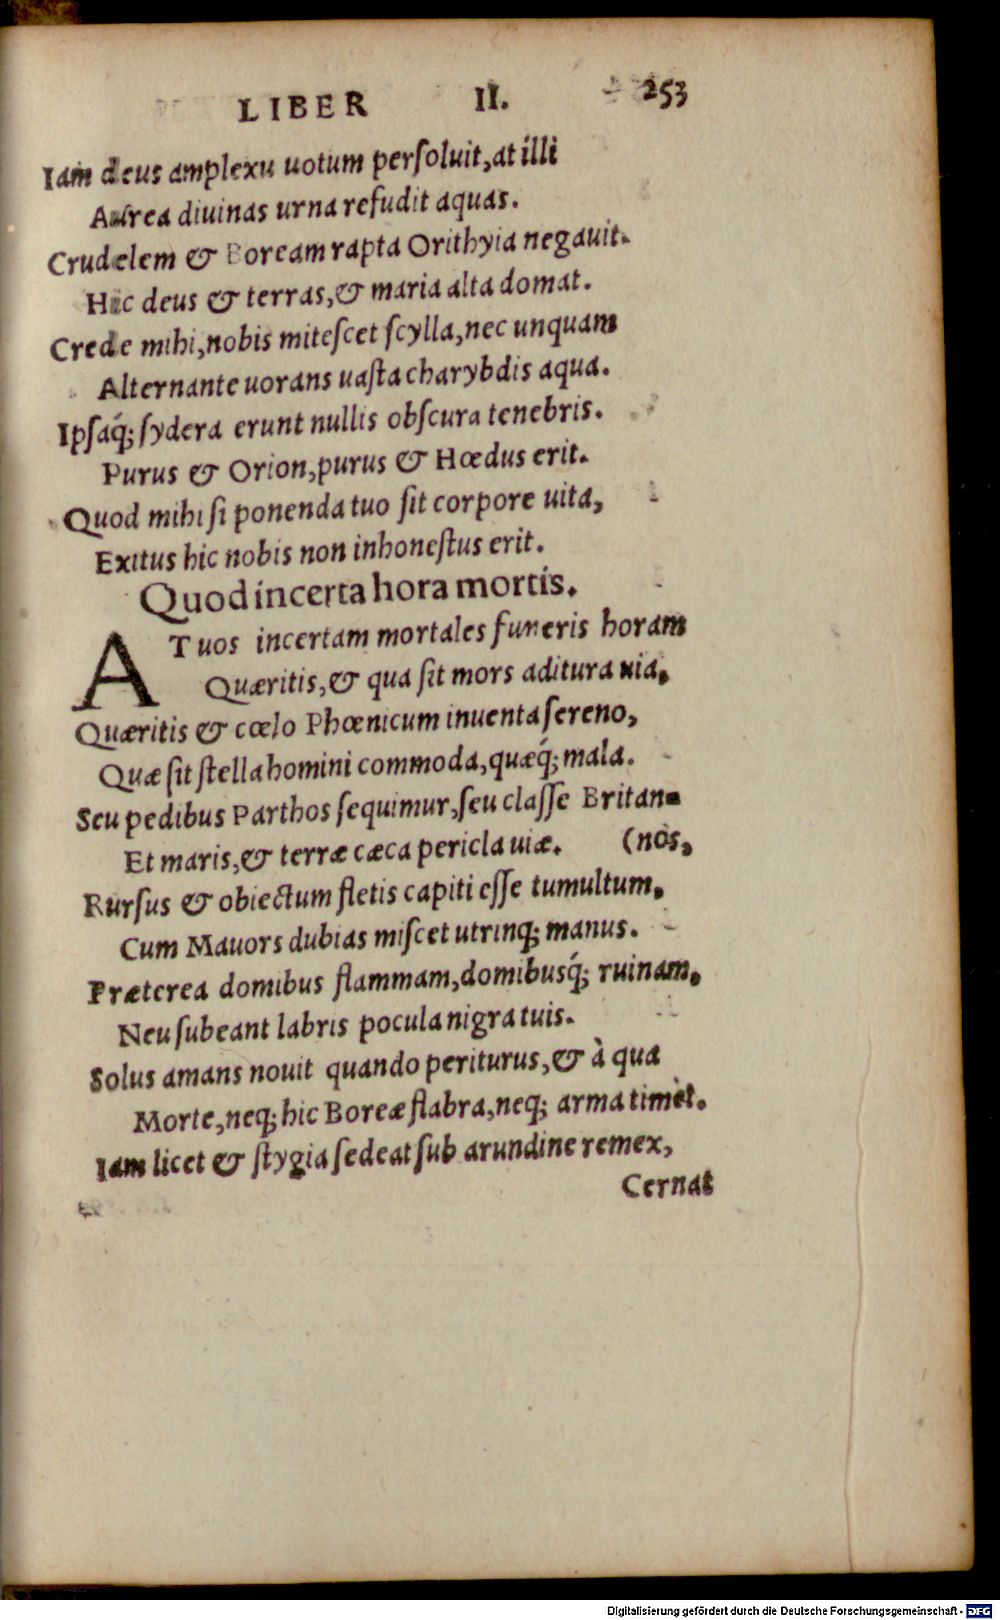 LIBER II. 253
Iam deus amplexu uotum perſoluit, at illi
Aurea diuinas urna refudit aquas.
Crudelem & Boream rapta Orithyia negauit.
Hic deus & terras, & maria alta domat.
Crede mihi, nobis miteſcet ſcylla, nec unquam
Alternante uorans uaſta charybdis aqua.
Ipſaq́; ſydera erunt nullis obſcura tenebris.
Purus & Orion, purus & Hœdus erit.
Quod mihi ſi ponenda tuo ſit corpore uita,
Exitus hic nobis non inhoneſtus erit.
Quod incerta hora mortis.
AT uos incertam mortales funeris horam
Quæritis, & qua ſit mors aditura uia,
Quæritis & cœlo Phœnicum inuenta ſereno,
Quæ ſit ſtella homini commoda, quæq́; mala.
Seu pedibus Parthos ſequimur, ſeu claſſe Britan-
Et maris, & terræ cæca pericla uiæ. (nos,
Rurſus & obiectum fletis capiti eſſe tumultum,
Cum Mauors dubias miſcet utrinq; manus.
Præterea domibus flammam, domibusq́; ruinam,
Neu ſubeant labris pocula nigra tuis.
Solus amans nouit quando periturus, & à qua
Morte, neq; hic Boreæ flabra, neq; arma timet.
Iam licet & ſtygia ſedeat ſub arundine remex,
Cernat
Digitalisierung gefördert durch die Deutsche Forschungsgemeinschaft - DFG